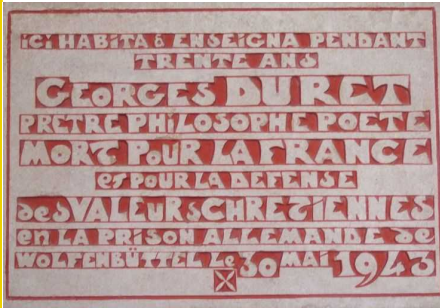 iCi HABITA & ENSEIGNA PENDANT
TRENTE ANS
GEORGES DURET
PRETRE PHiLOSOPHE POETE
MORT POUR LA FRANCE
et POUR LA DEFENSE
des VALEURS CHRETIENNES
en LA PRISON ALLEMANDE de
WOLFENBÜTTEL Le 30 MAI 1943